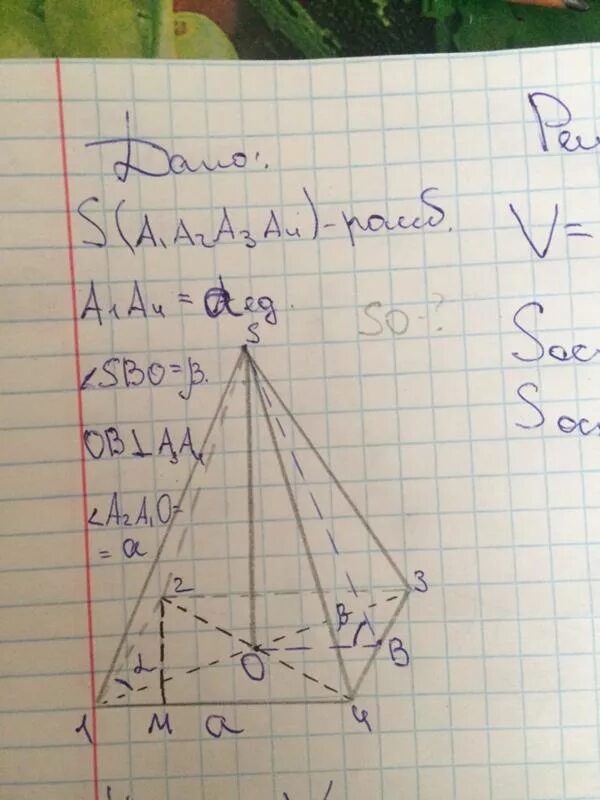 Дано:
Реш
S(A₁A₂A₃A₄)-ромб.
V=
A₁A₄ = a ед.
SO-?
S
Sос
<SBO=β.
Sос
OB⊥A₃A₄
<A₂A₁O=
= α
2
3
β
α
O
B
1
M
a
4